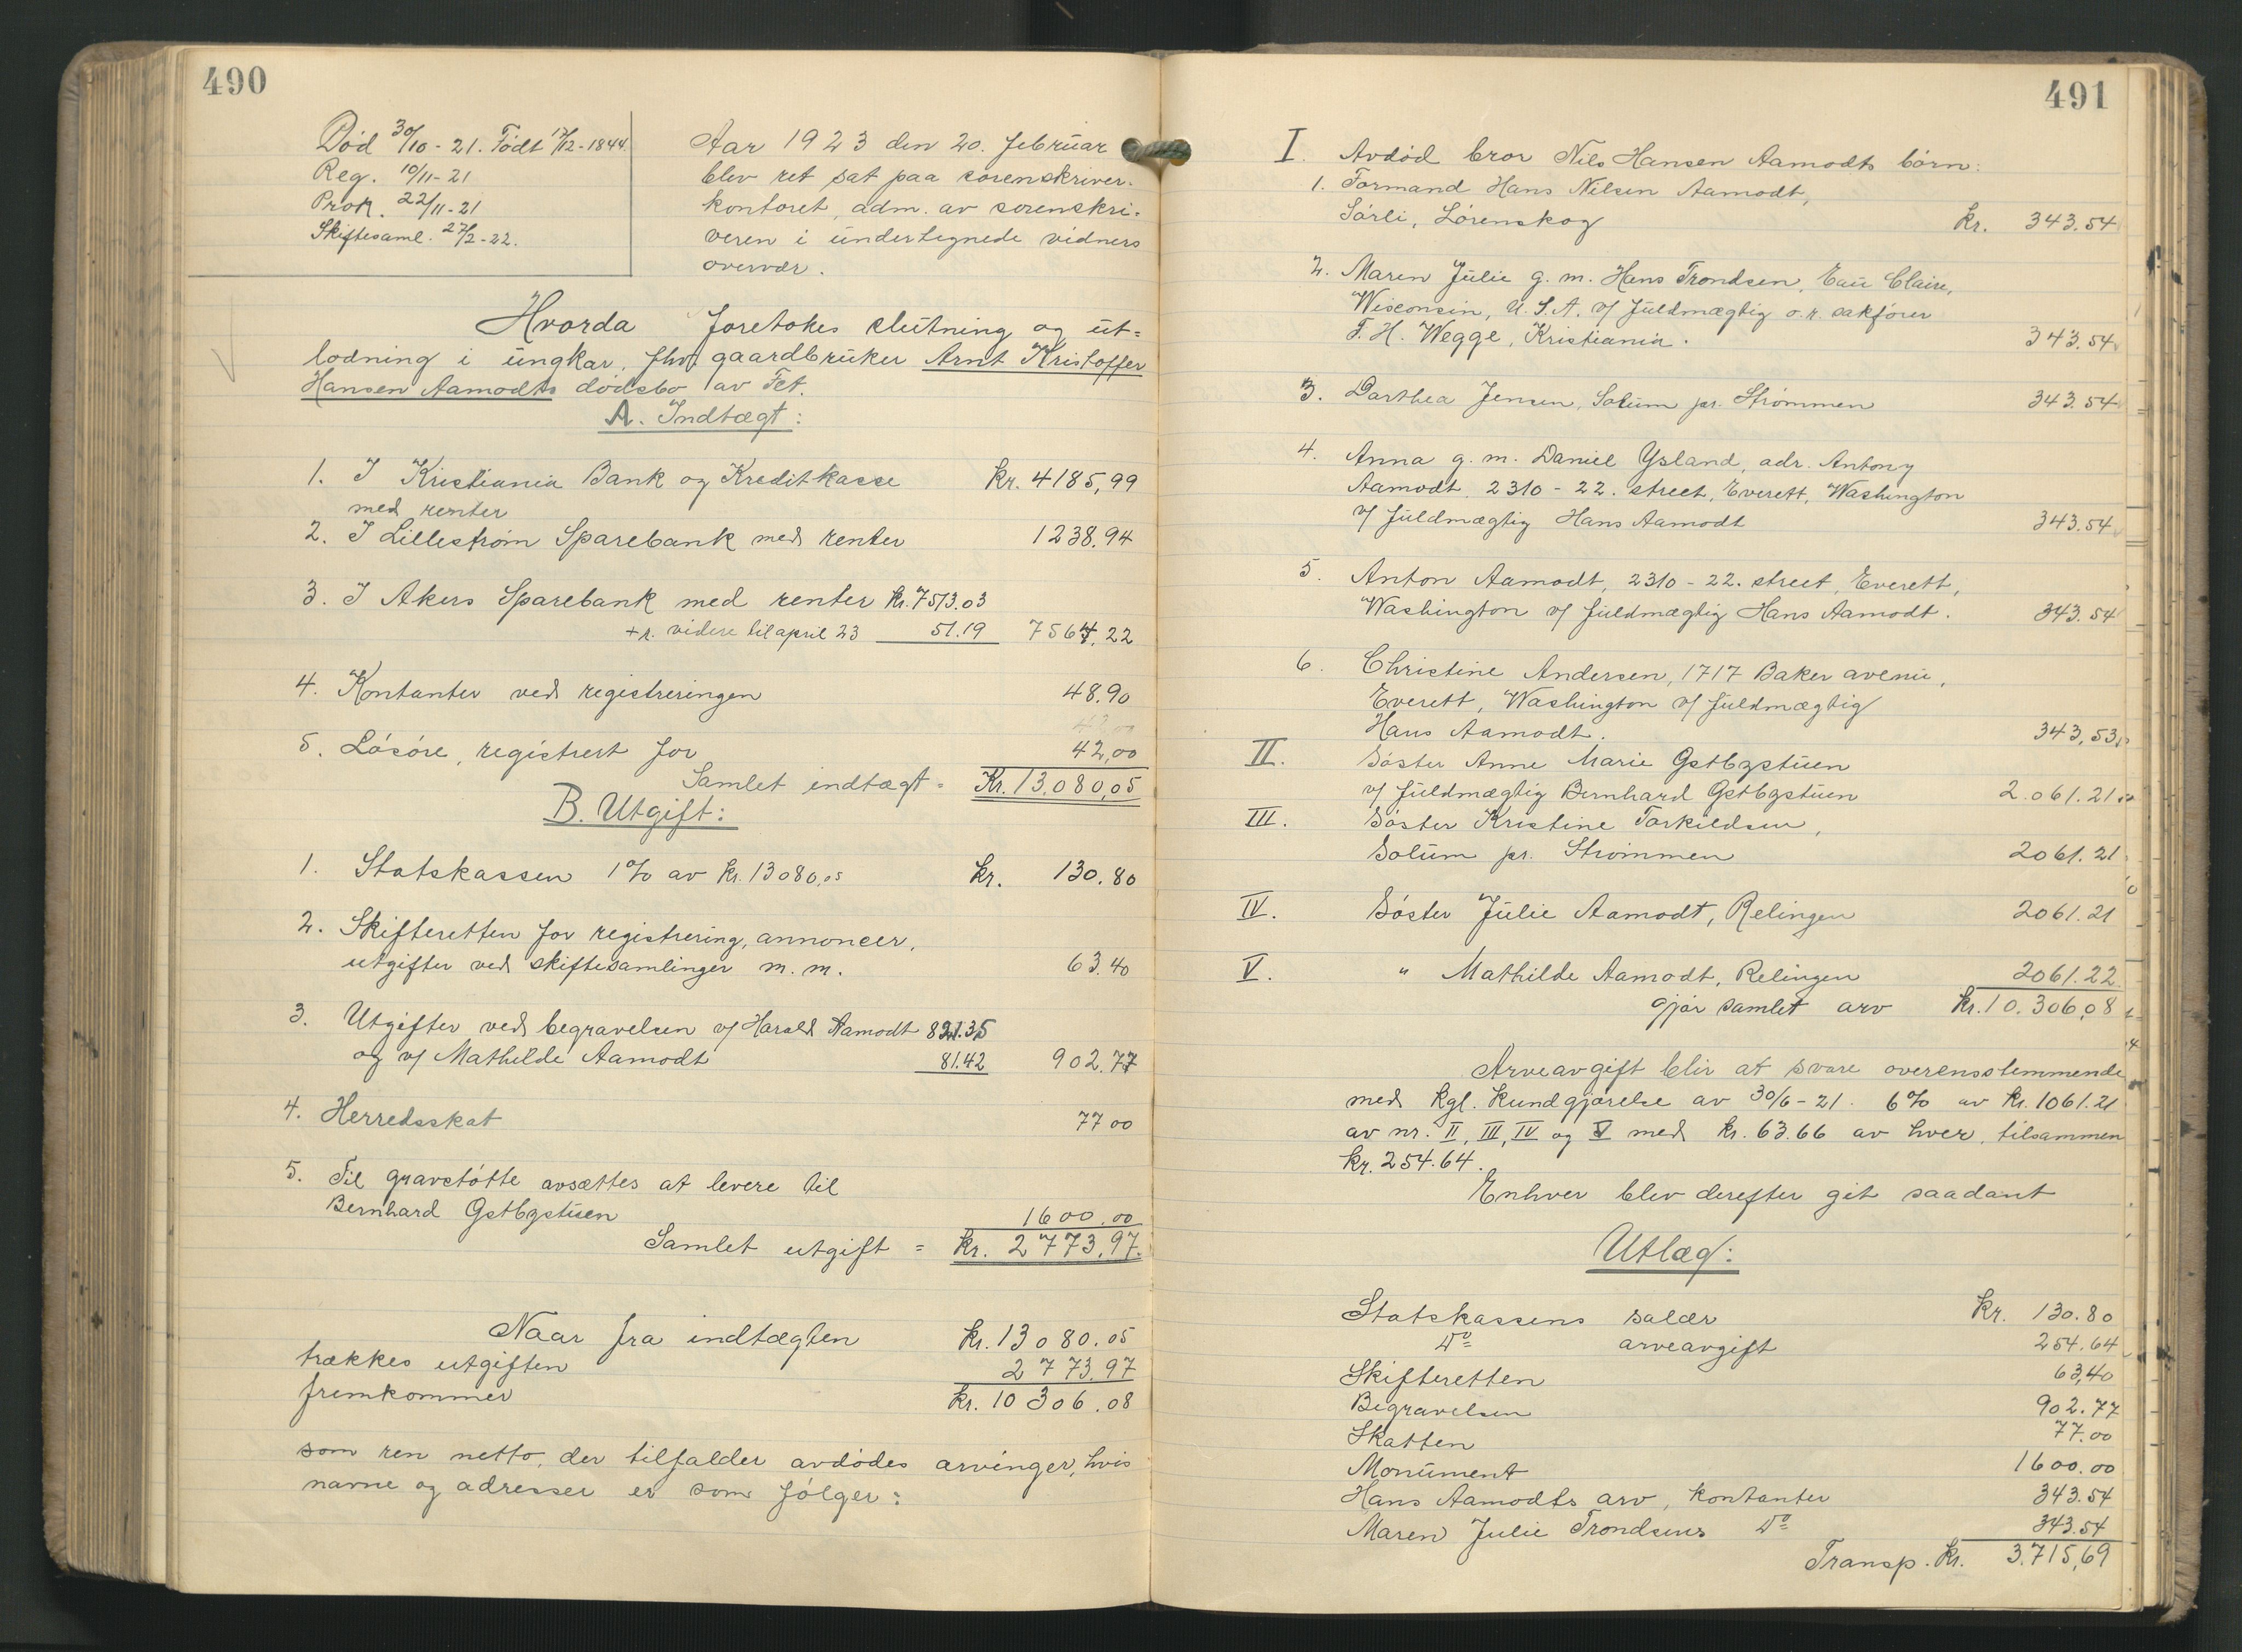 490
Død 30/10-21. Født 17/12-1844.
Reg. 10/11-21
Prok. 22/11-21
Skiftesaml. 27/2-22.
Aar 1923 den 20. februar
blev ret sat paa sorenskriver-
kontoret, adm. av sorenskri-
veren i undertegnede vidners
overvær.
Hvorda foretokes slutning og ut=
lodning i ungkar, fhv. gaardbruker Arnt Kristoffer
Hansen Aamodts dødsbo av Fet.
A. Indtægt:
1. I Kristiania Bank og Kreditkasse kr. 4185,99
med renter
2. I Lillestrøm Sparebank med renter 1238.94
3. I Akers Sparebank med renter kr. 7513.03
+ r. videre til april 23 51.19 7564,22
4. Kontanter ved registreringen 48.90
5. Løsøre, registrert for 42,00
Samlet indtægt = Kr. 13.080,05
B. Utgift:
1. Statskassen 1% av kr. 13080,05 kr. 130.80
2. Skifteretten for registrering, annoncer,
utgifter ved skiftesamlinger m. m. 63.40
3. Utgifter ved begravelsen v/ Harald Aamodt 821.35
og v/ Mathilde Aamodt 81.42 902.77
4. Herredsskat 77 00
5. Til gravstøtte avsættes at levere til
Bernhard Østbystuen 1600.00
Samlet utgift = kr. 2773,97.
Naar fra indtægten kr. 13080.05
trækkes utgiften 2773.97
fremkommer kr. 10306.08
som ren netto, der tilfalder avdødes arvinger, hvis
navne og adresser er som følger:
491
I. Avdød bror Nils Hansen Aamodts børn:
1. Formand Hans Nilsen Aamodt,
Sørli, Lørenskog kr. 343.54
2. Maren Julie g. m. Hans Trondsen, Eau Claire,
Wisconsin, U.S.A. v/ fuldmægtig o.r. sakfører
F. H. Wegge, Kristiania. 343.54
3. Dorthea Jensen, Solum pr. Strømmen 343.54
4. Anna g. m. Daniel Ysland, adr. Antony
Aamodt, 2310-22. street, Everett, Washington
v/ fuldmægtig Hans Aamodt 343.54
5. Anton Aamodt, 2310-22. street, Everett,
Washington v/ fuldmægtig Hans Aamodt. 343.54
6. Christine Andersen, 1717 Baker avenu,
Everett, Washington v/ fuldmægtig
Hans Aamodt. 343,53
II. Søster Anne Marie Østbystuen
v/ fuldmægtig Bernhard Østbystuen 2.061.21
III. Søster Kristine Torkildsen,
Solum pr. Strømmen 2061.21
IV. Søster Julie Aamodt, Relingen 2061.21
V. " Mathilde Aamodt, Relingen 2061.22
gjør samlet arv kr. 10.306,08
Arveavgift blir at svare overensstemmende
med kgl. kundgjørelse av 30/6-21. 6% av kr. 1061.21
av nr. II, III, IV og V med kr. 63.66 av hver, tilsammen
kr. 254.64.
Enhver blev derefter git saadant
Utlæg:
Statskassens salær kr. 130.80
Do arveavgift 254.64
Skifteretten 63,40
Begravelsen 902.77
Skatten 77.00
Monument 1600.00
Hans Aamodts arv, kontanter 343.54
Maren Julie Trondsens Do 343.54
Transp. kr. 3.715,69